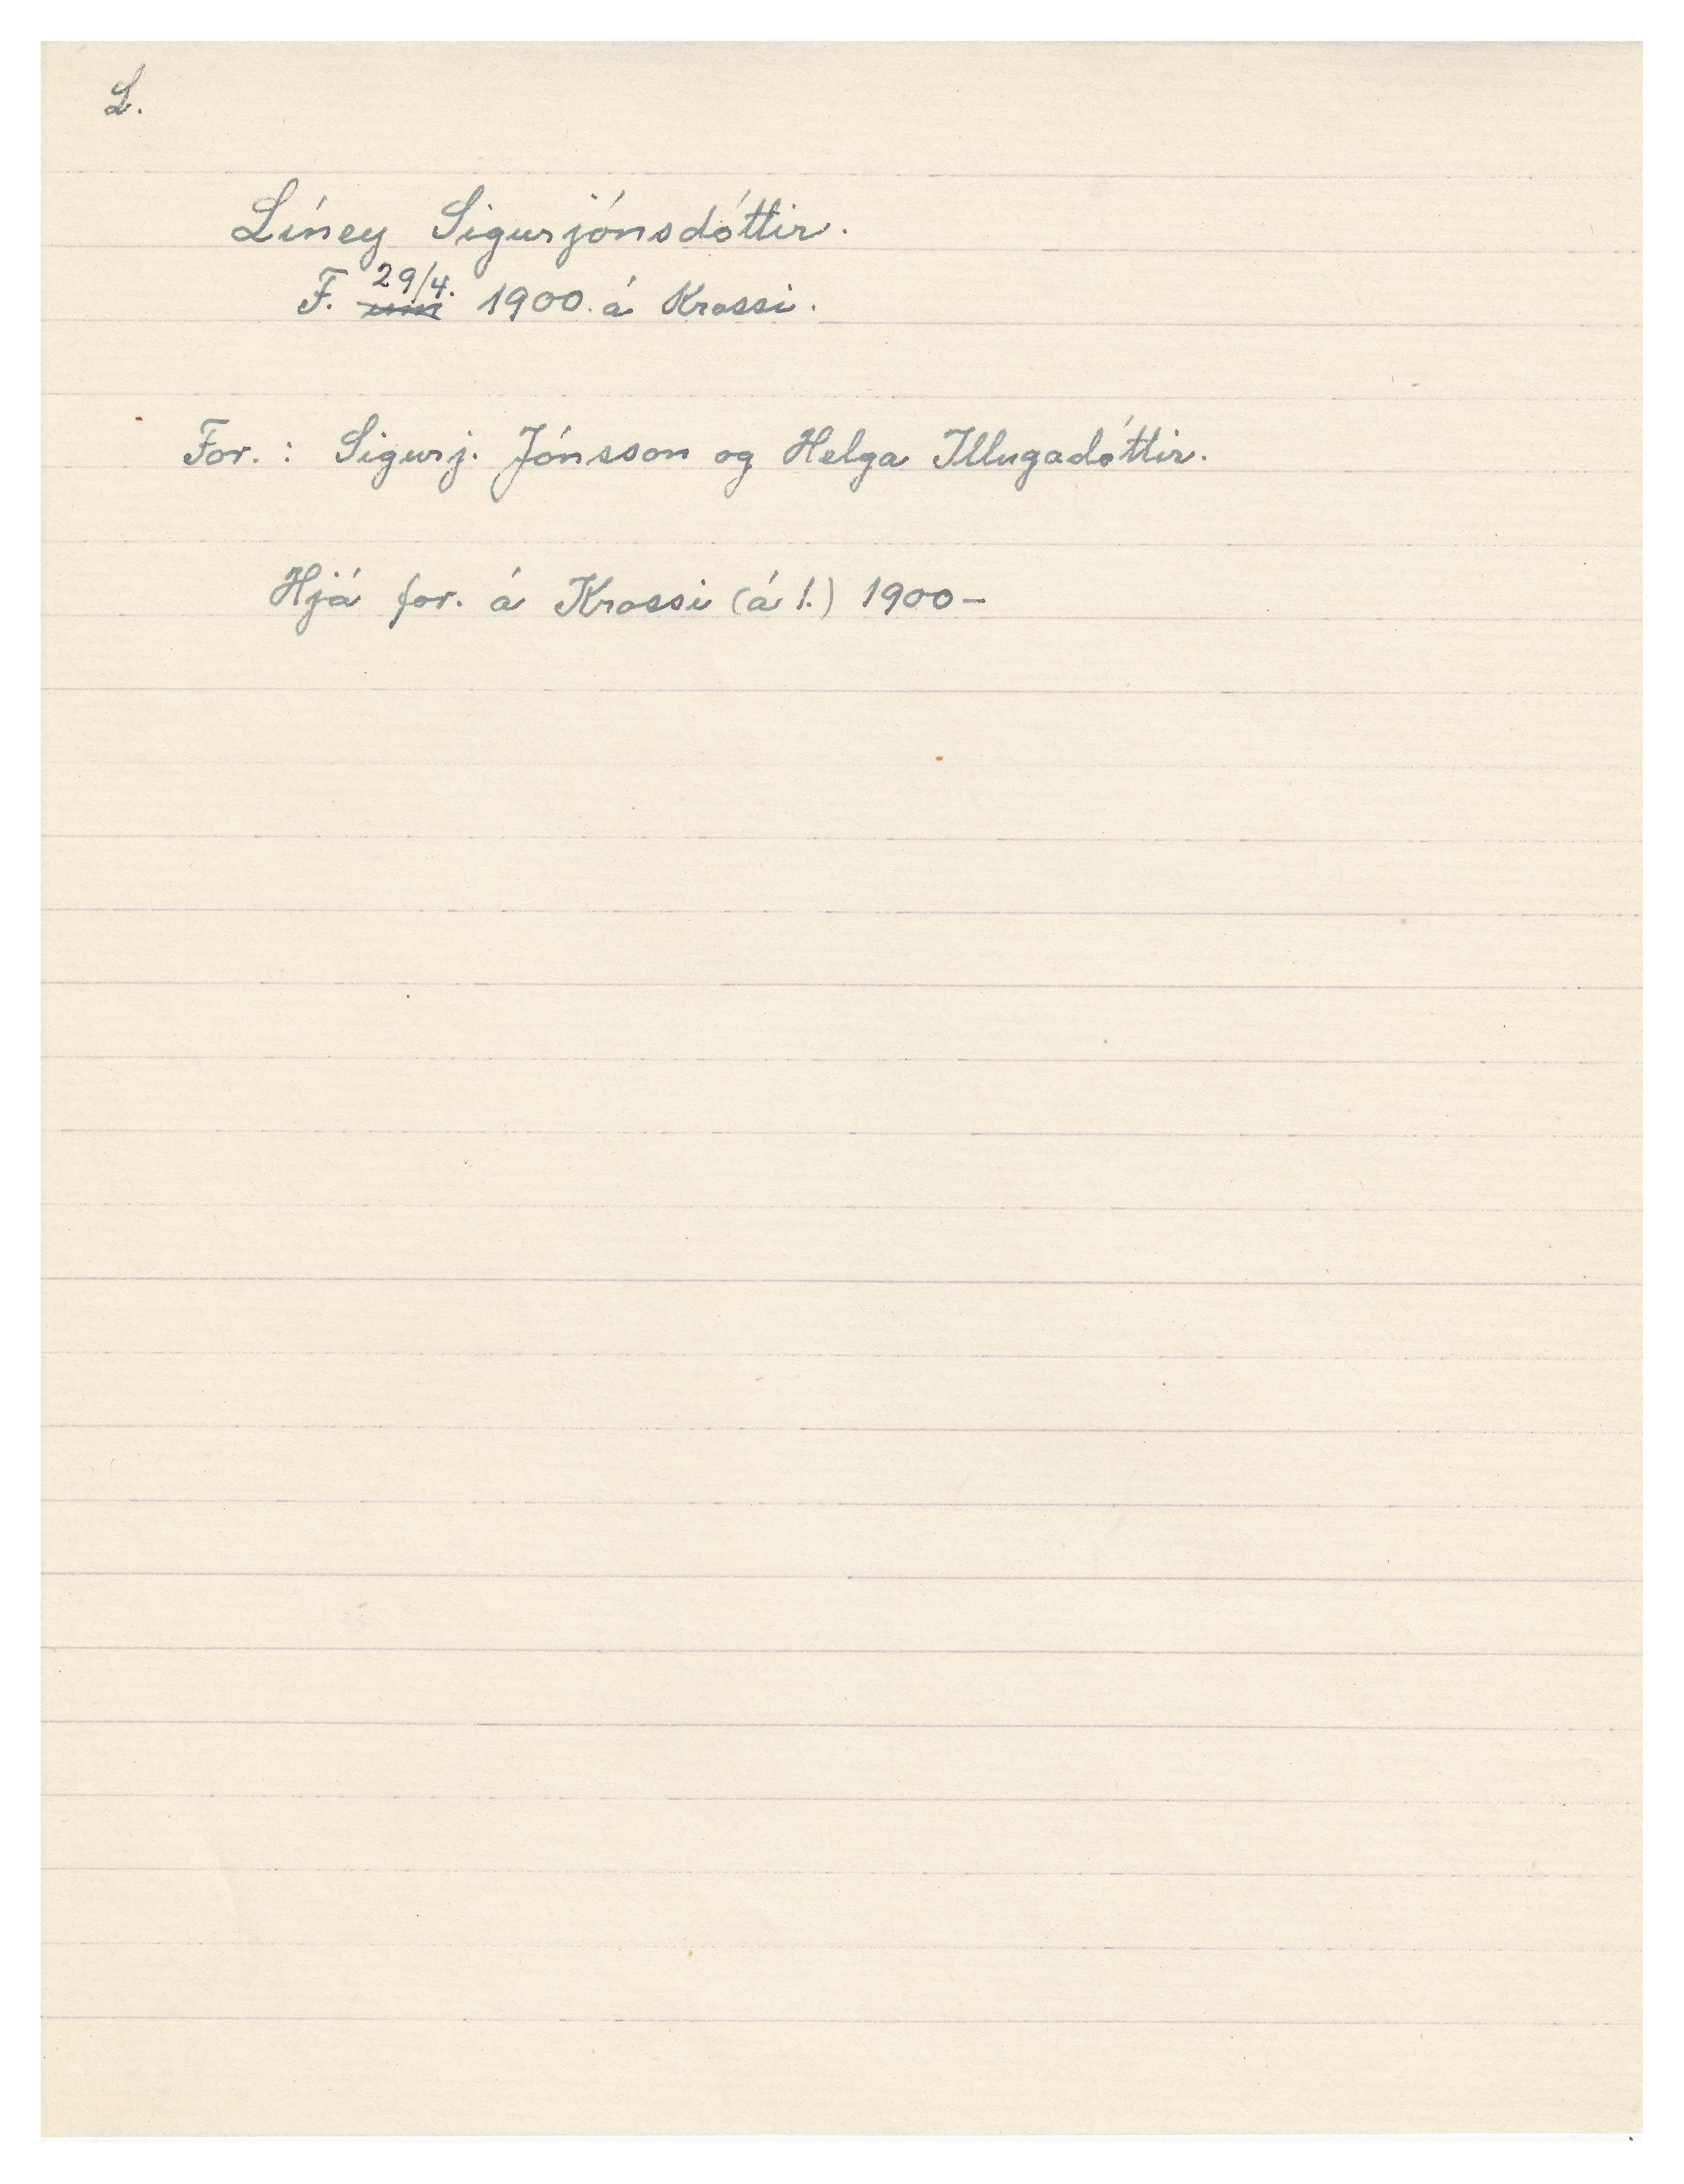 L.
Líney Sigurjónsdóttir.
F. 29/4. um 1900. á Krossi.
For. : Sigurj. Jónsson og Helga Illugadóttir.
Hjá for. á Krossi (á 1.) 1900-